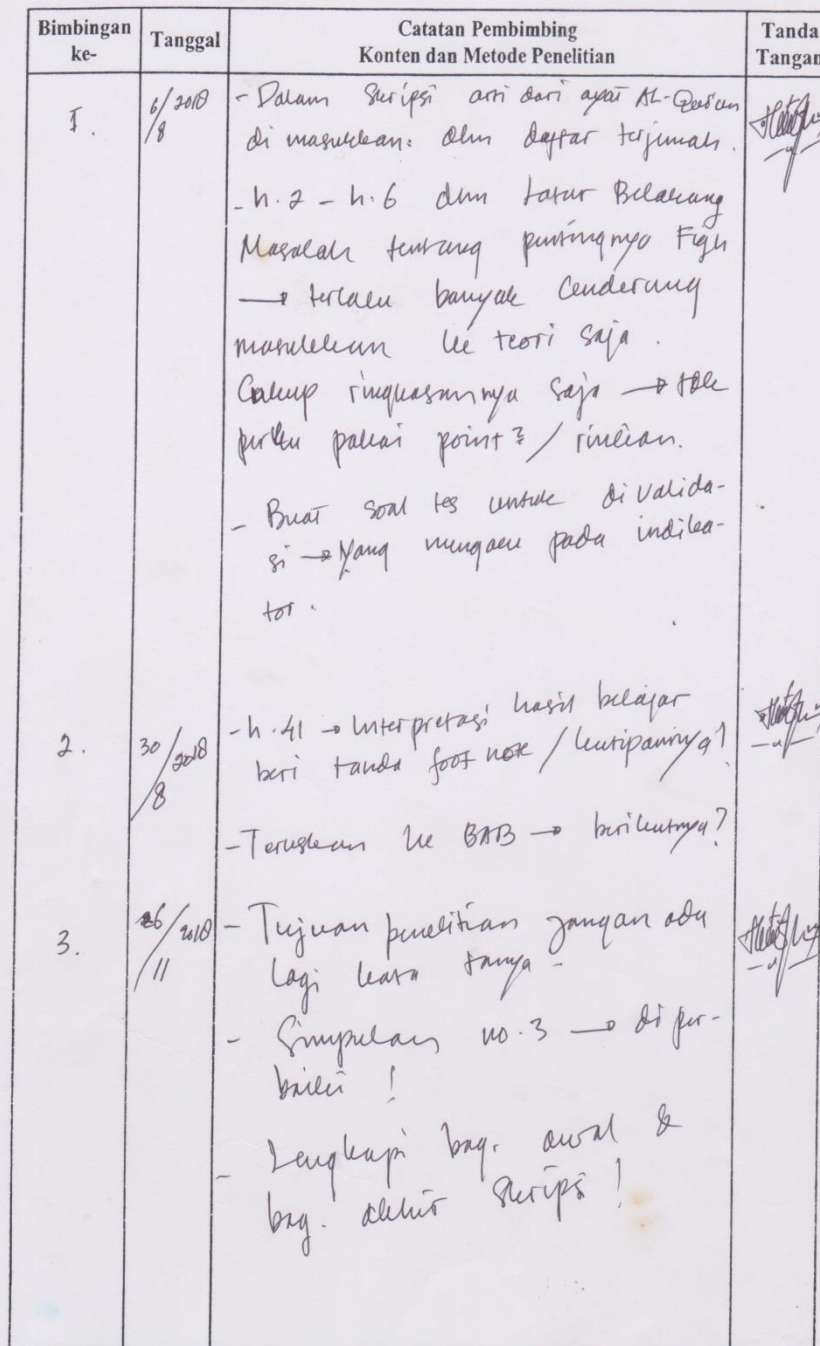 Bimbingan ke-
Tanggal
Catatan Pembimbing
Konten dan Metode Penelitian
Tanda Tangan
I.
6/8 2018
- Dalam Skripsi arti dari ayat AL-Qur'an
di masukkan: dlm daftar terjemah.
- h.2 - h.6 dlm Latar Belakang
Masalah tentang pentingnya Fiqh
→ terlalu banyak cenderung
masukkan ke teori saja.
Cukup ringkasannya saja → tdk
perlu pakai point² / rincian.
- Buat soal tes untuk di valida-
si → yang mengacu pada indika-
tor.
2.
30/8 2018
- h.41 → Interpretasi hasil belajar
beri tanda foot note / kutipannya!
- Teruskan ke BAB → berikutnya?
3.
26/11 2018
- Tujuan penelitian jangan ada
lagi kata tanya -
- Simpulan no.3 → di per-
baiki !
- Lengkapi bag. awal &
bag. akhir Skripsi !